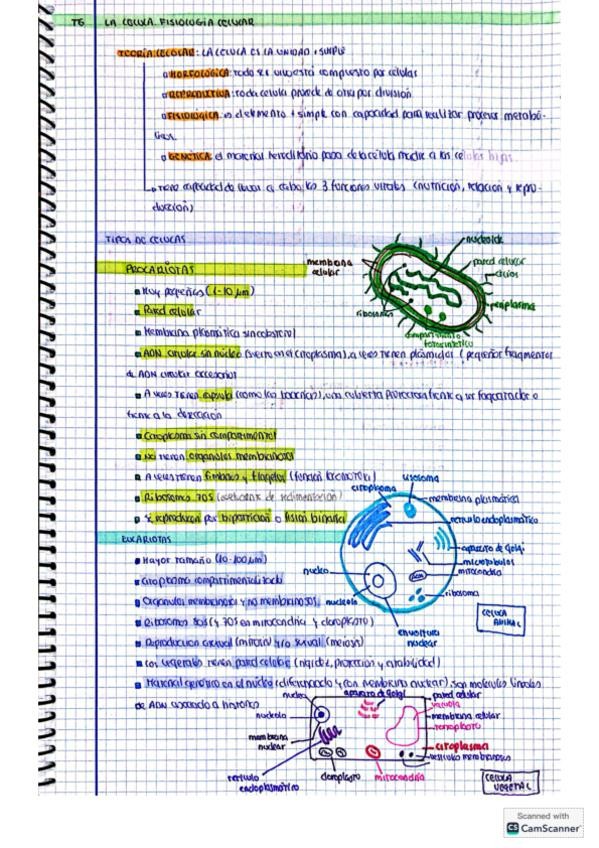 T6 LA CÉLULA. FISIOLOGÍA CELULAR
TEORÍA CELULAR: LA CÉLULA ES LA UNIDAD + SIMPLE
MORFOLÓGICA: todo ser vivo está compuesto por células
REPRODUCTIVA: toda célula procede de otra por división
FISIOLÓGICA: es el elemento + simple con capacidad para realizar procesos metabó-
licos.
GENÉTICA: el material hereditario pasa de la célula madre a las células hijas.
tiene capacidad de llevar a cabo las 3 funciones vitales (nutrición, relación y repro-
ducción)
TIPOS DE CÉLULAS
PROCARIOTAS
membrana
celular
nucleoide
pared celular
cilios
periplasma
ribosomas
compartimento
fotosintético
Muy pequeñas (1-10 µm)
Pared celular
Membrana plasmática sin colesterol
ADN circular sin núcleo (suelto en el citoplasma), a veces tienen plásmidos (pequeños fragmentos
de ADN circular accesorio)
A veces tienen cápsula (como las bacterias), una cubierta protectora frente a ser fagocitado o
frente a la desecación
Citoplasma sin compartimentar
No tienen orgánulos membranosos
A veces tienen fimbrias y flagelos (función locomotora)
Ribosomas 70S (coeficiente de sedimentación)
Se reproducen por bipartición o fisión binaria
EUCARIOTAS
citoplasma
lisosoma
membrana plasmática
retículo endoplasmático
aparato de Golgi
microtúbulos
mitocondria
ribosoma
núcleo
nucleolo
envoltura
nuclear
CÉLULA
ANIMAL
Mayor tamaño (10-100µm)
Citoplasma compartimentalizado
Orgánulos membranosos y no membranosos
Ribosomas 80S (y 70S en mitocondria y cloroplasto)
Reproducción asexual (mitosis) y/o sexual (meiosis)
Las vegetales tienen pared celular (rigidez, protección y estabilidad)
Material genético en el núcleo (diferenciado y con membrana nuclear), son moléculas lineales
de ADN asociado a histonas
núcleo
nucleolo
membrana
nuclear
retículo
endoplasmático
aparato de Golgi
cloroplasto
mitocondria
pared celular
vacuola
membrana celular
tonoplasto
citoplasma
vesículas membranosas
CÉLULA
VEGETAL
Scanned with
CS CamScanner